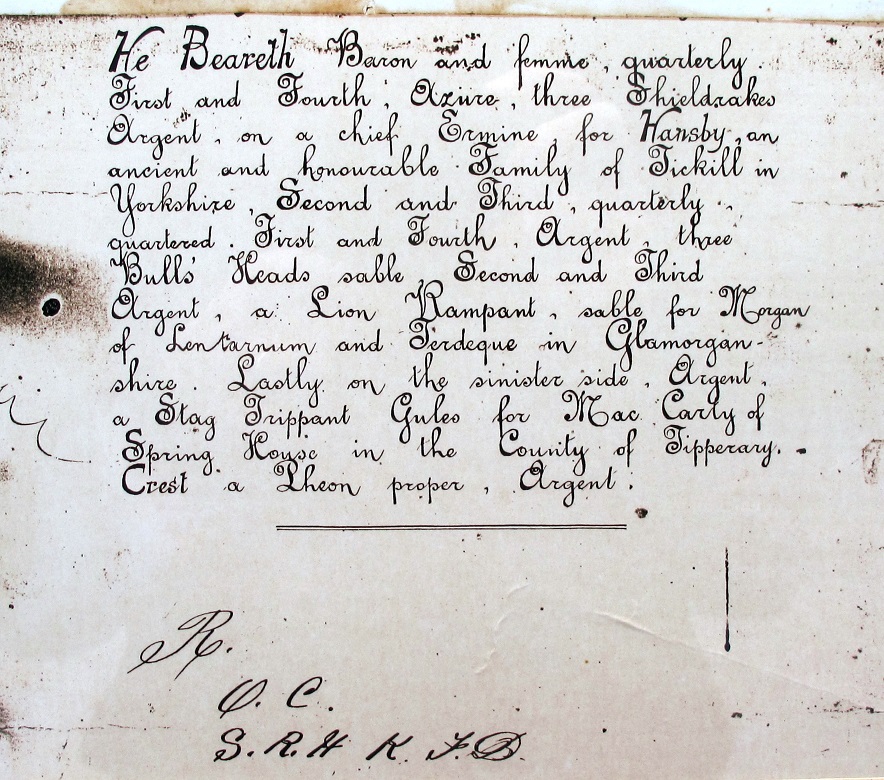 He Beareth Baron and femme, quarterly.
First and Fourth, Azure, three Shieldrakes
Argent, on a chief Ermine, for Hansby, an
ancient and honourable Family of Tickill in
Yorkshire, Second and Third, quarterly,
quartered. First and Fourth, Argent, three
Bulls' Heads sable, Second and Third
Argent, a Lion Rampant, sable for Morgan
of Lentarnum and Terdeque in Glamorgan-
shire. Lastly on the sinister side, Argent,
a Stag Trippant Gules for Mac Carty of
Spring House in the County of Tipperary. -
Crest a Pheon proper, Argent.
R.
O. C.
S. R. H K. F. D.